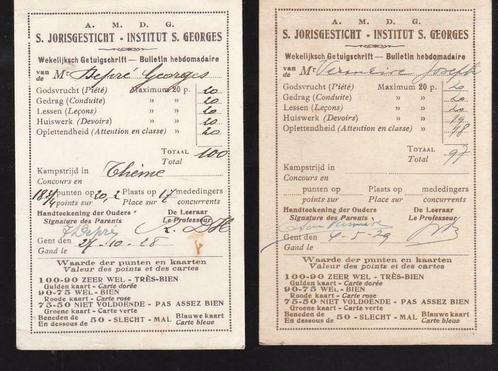 A. M. D. G.
S. JORISGESTICHT - INSTITUT S. GEORGES
Wekelijksch Getuigschrift — Bulletin hebdomadaire
van de M^r Depré Georges
Godsvrucht (Piété) Maximum 20 p. 20
Gedrag (Conduite) » » 20
Lessen (Leçons) » » 20
Huiswerk (Devoirs) » » 20
Oplettendheid (Attention en classe) » » 20
TOTAAL
Total 100
Kampstrijd in
Concours en Thème
punten op 20, 2 Plaats op 17 mededingers
points sur Place sur concurrents
Handteekening der Ouders De Leeraar
Signature des Parents Le Professeur
Gent den 27-10-28
Gand le
Waarde der punten en kaarten
Valeur des points et des cartes
100-90 ZEER WEL - TRÈS-BIEN
Gulden kaart - Carte dorée
90-75 WEL - BIEN
Roode kaart - Carte rose
75-50 NIET VOLDOENDE - PAS ASSEZ BIEN
Groene kaart - Carte verte
Beneden de 50 - SLECHT - MAL Blauwe kaart
En dessous de Carte bleue
A. M. D. G.
S. JORISGESTICHT - INSTITUT S. GEORGES
Wekelijksch Getuigschrift — Bulletin hebdomadaire
van de M^r Joseph
Godsvrucht (Piété) Maximum 20 p. 20
Gedrag (Conduite) » » 20
Lessen (Leçons) » » 20
Huiswerk (Devoirs) » » 19
Oplettendheid (Attention en classe) » » 18
TOTAAL
Total 97
Kampstrijd in
Concours en
punten op Plaats op mededingers
points sur Place sur concurrents
Handteekening der Ouders De Leeraar
Signature des Parents Le Professeur
Gent den 4-5-29
Gand le
Waarde der punten en kaarten
Valeur des points et des cartes
100-90 ZEER WEL - TRÈS-BIEN
Gulden kaart - Carte dorée
90-75 WEL - BIEN
Roode kaart - Carte rose
75-50 NIET VOLDOENDE - PAS ASSEZ BIEN
Groene kaart - Carte verte
Beneden de 50 - SLECHT - MAL Blauwe kaart
En dessous de Carte bleue